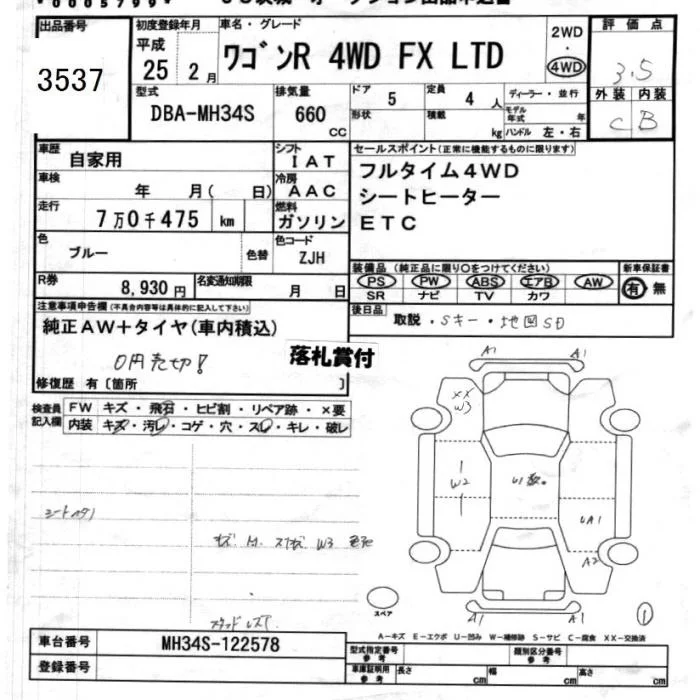 *0005799*
出品番号 初度登録年月 車名・グレード 2WD 評価点
3537
平成 25 2月 ワゴンR 4WD FX LTD ・ 4WD 3.5
型式 排気量 ドア 5 定員 4人 ディーラー・並行 外装 内装
DBA-MH34S 660 CC 形状 積載 kg モデル年式 年 ハンドル 左・右 C B
車歴 自家用 シフト IAT セールスポイント(正常に機能するものに限ります)
車検 年 月( 日) 冷房 AAC フルタイム4WD
走行 7万0千475 km 燃料 ガソリン シートヒーター
ETC
色 ブルー 色替 色コード ZJH
装備品(純正品に限り○をつけてください) 新車保証書
PS PW ABS エアB AW 有 無
SR ナビ TV カワ
R券 8,930円 名変通知期限 月 日
後日品 取説・Sキー・地図SD
注意事項申告欄(不具合内容等は具体的に記入して下さい)
純正AW+タイヤ(車内積込)
0円売切!
落札賞付
修復歴 有〔箇所 〕
検査員記入欄 FW キズ・飛石・ヒビ割・リペア跡・×要
内装 キズ・汚レ・コゲ・穴・スレ・キレ・破レ
A1 A1
XX
W3
W2
U1数。
UA1
A2
A1 A1
スペア
1
A-キズ E-エクボ U-凹み W-補修跡 S-サビ C-腐食 XX-交換済
車台番号 MH34S-122578
登録番号
型式指定番号 参考 類別区分番号 参考
車庫証明用 参考 長さ cm 幅 cm 高さ cm